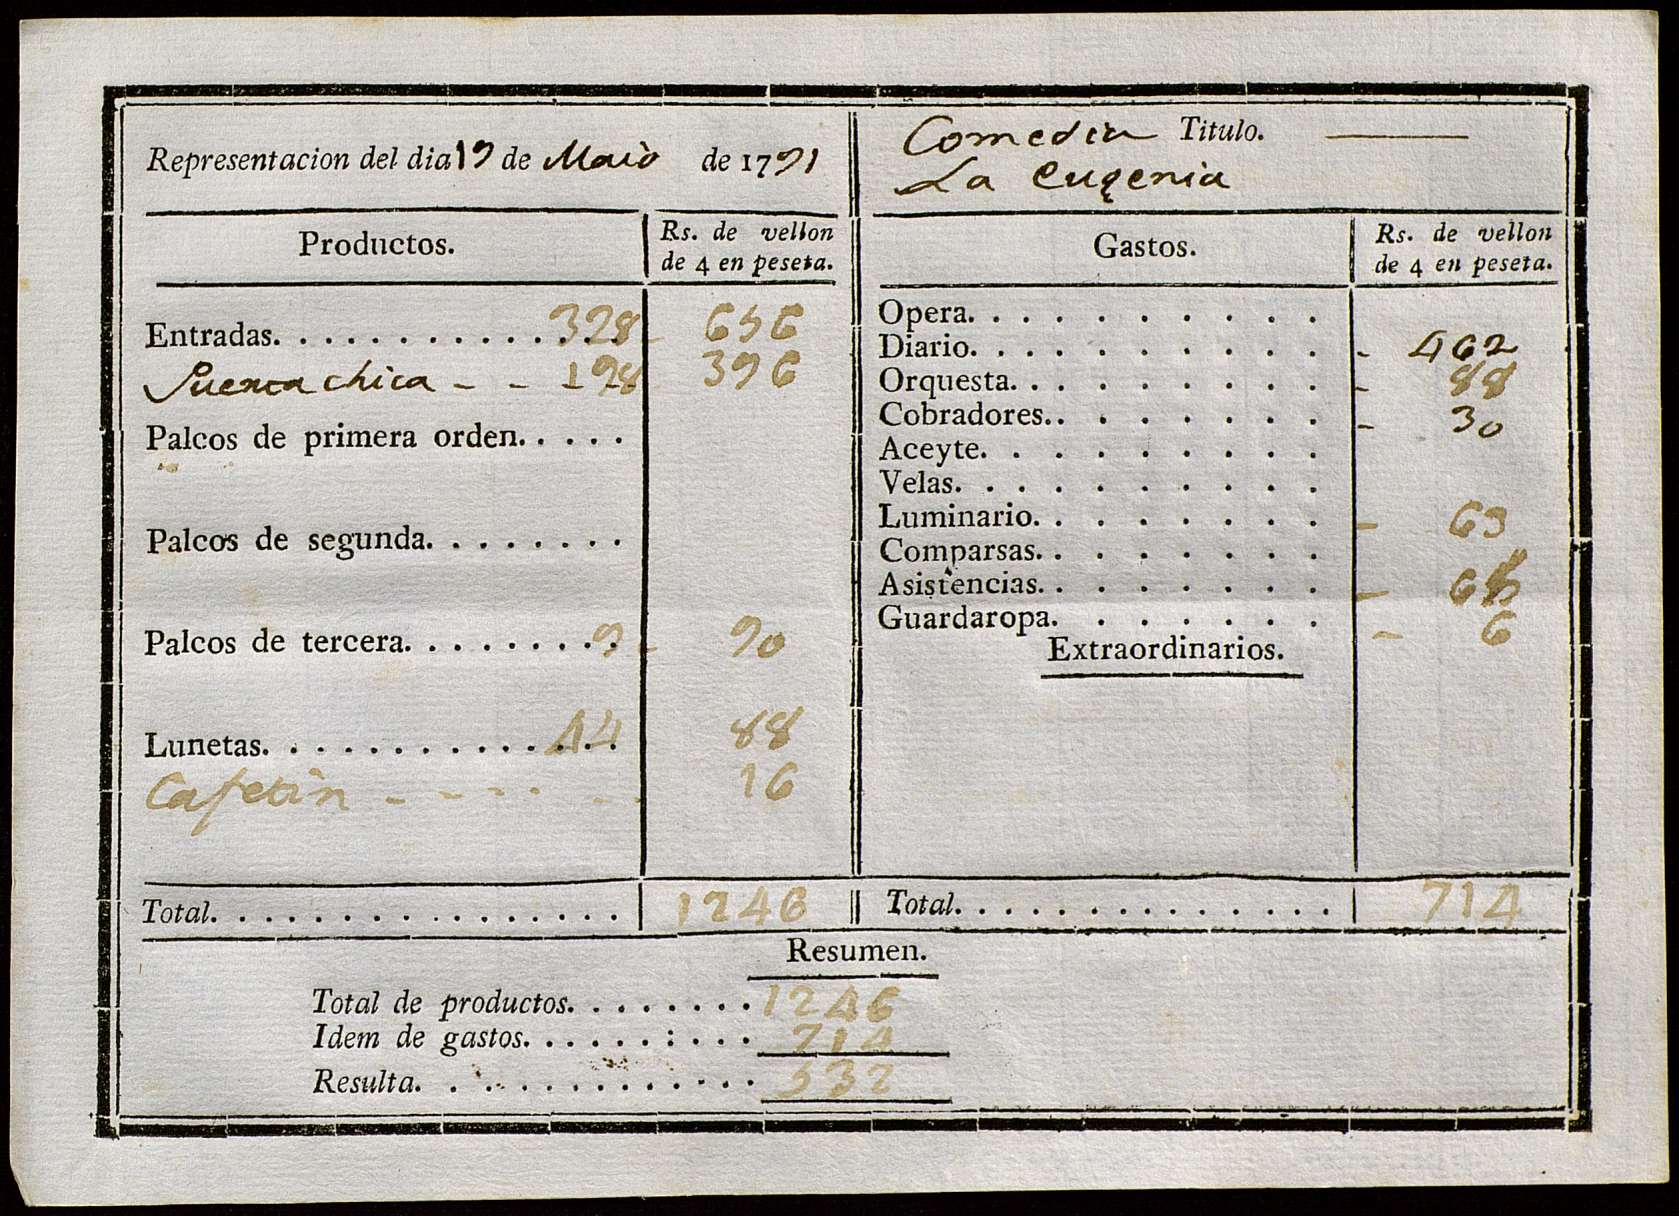 Representacion del dia 19 de Maio de 1791
Comedia Titulo.
La Eugenia
Productos. Rs. de vellon de 4 en peseta.
Entradas. . . . . . . . . . . . . . 328 - 656
Puerta chica - - 198 396
Palcos de primera orden. . . . .
Palcos de segunda. . . . . . . .
Palcos de tercera. . . . . . . . 9 - 90
Lunetas. . . . . . . . . . . . . . 44 88
Cafetin - - - - - - 16
Total. . . . . . . . . . . . . . . . 1246
Gastos. Rs. de vellon de 4 en peseta.
Opera. . . . . . . . . .
Diario. . . . . . . . . . - 462
Orquesta. . . . . . . . . - 88
Cobradores. . . . . . . . - 30
Aceyte. . . . . . . . .
Velas. . . . . . . . . .
Luminario. . . . . . . . - 63
Comparsas. . . . . . . .
Asistencias. . . . . . . . - 65
Guardaropa. . . . . . . - 6
Extraordinarios.
Total. . . . . . . . . . . . . . 714
Resumen.
Total de productos. . . . . . . . 1246
Idem de gastos. . . . . . : . . . 714
Resulta. . . . . . . . . . . . . 532